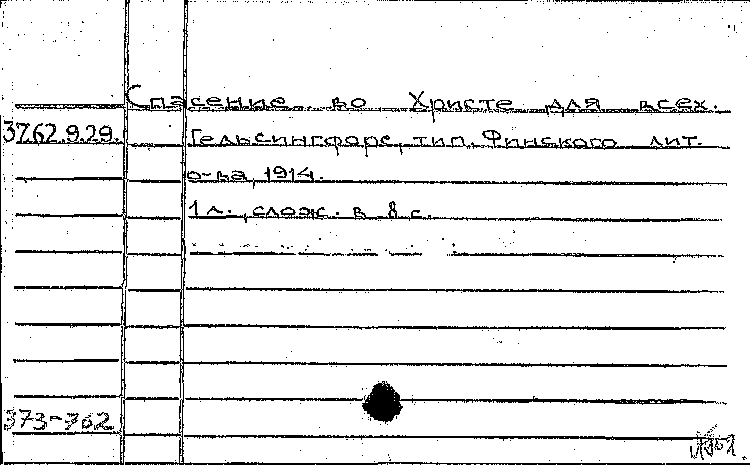 Спасение во Христе для всех.
37.62.9.29. Гельсингфорс, тип. Финского лит.
о-ва, 1914.
1 л., слож. в 8 с.
373-762